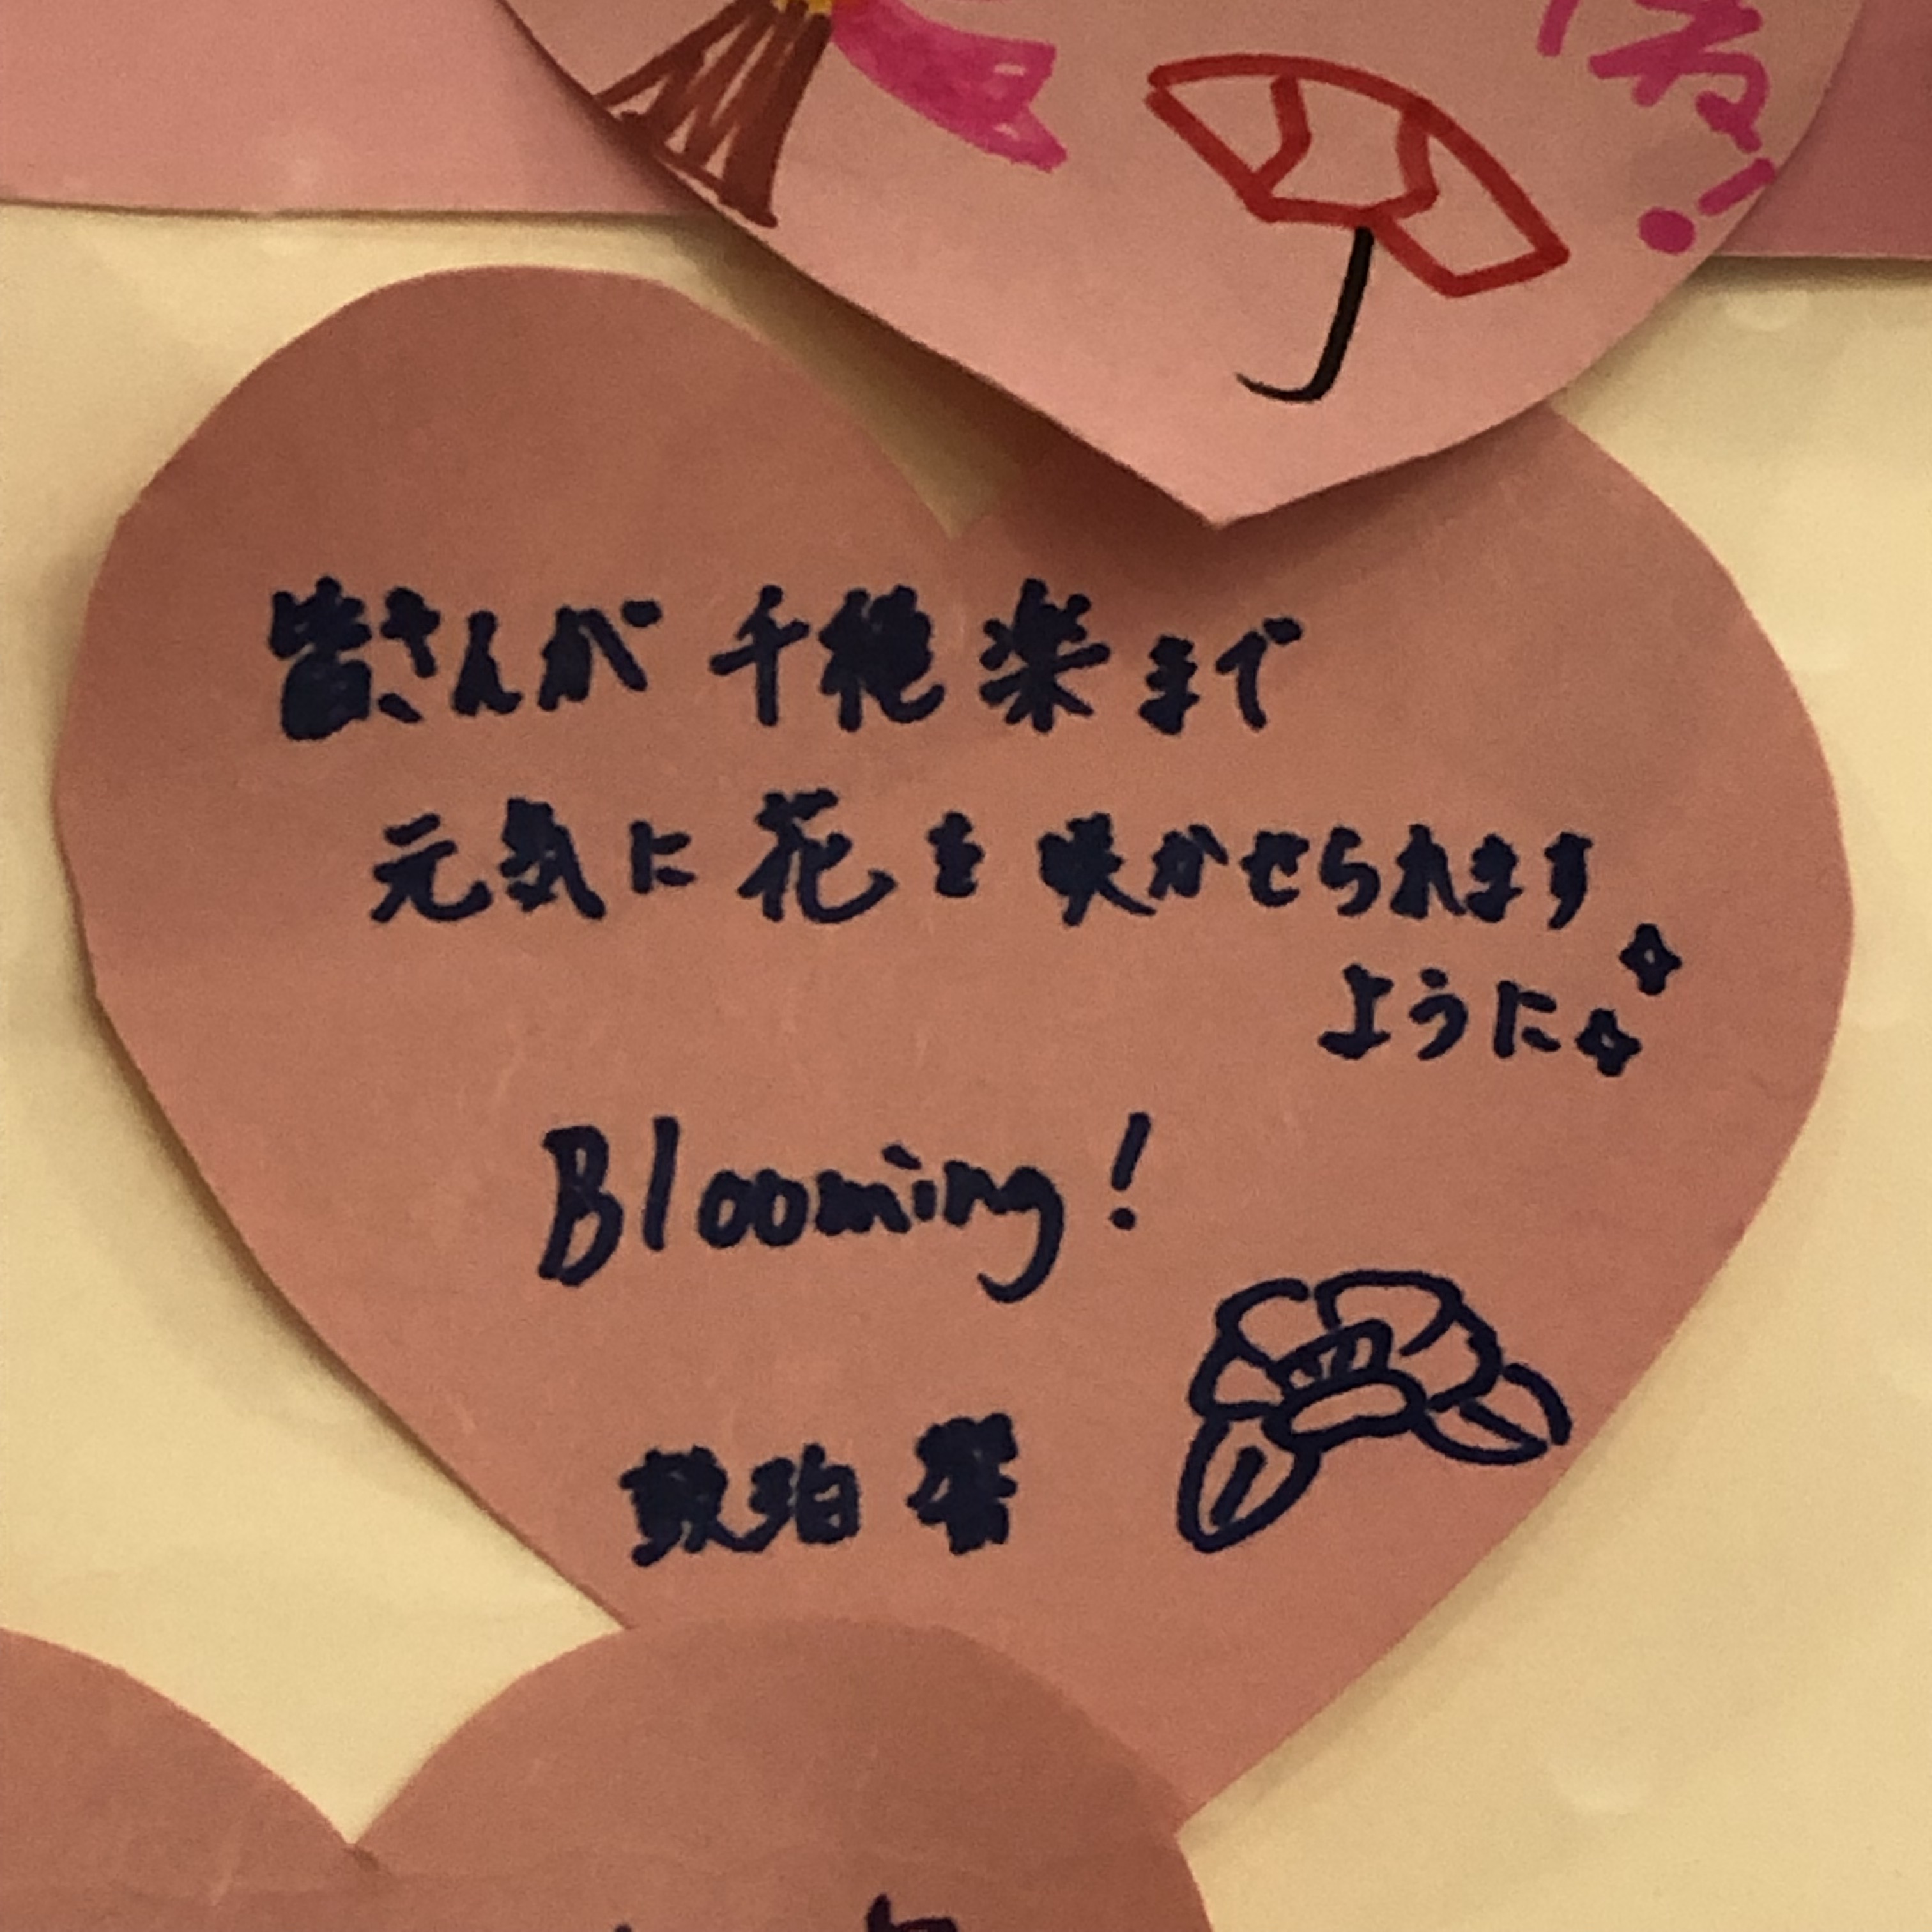 皆さんが 千穐楽まで
元気に 花を 咲かせられます
ように
Blooming!
鼓珀 響